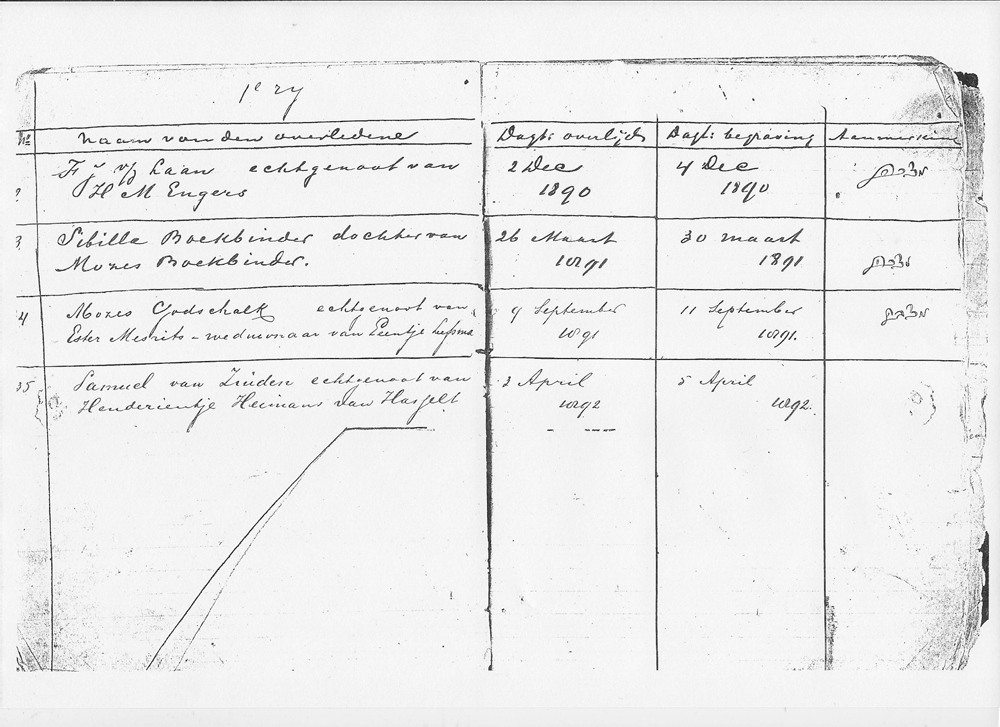 1e ry
No Naam van den overledene Dagt: overlijd Dagt: begraving
F J v/d Laan echtgenoot van 2 Dec 4 Dec
H M Engers 1890 1890
3 Sibilla Boekbinder dochter van 26 Maart 30 maart
Mozes Boekbinder. 1891 1891
4 Mozes Godschalk echtgenoot van 9 September 11 September
Ester Mesrits - weduwnaar van Leentje 1891 1891.
35 Samuel van Zuiden echtgenoot van 3 April 5 April
Henderientje Heimans van Hasselt 1892 1892.